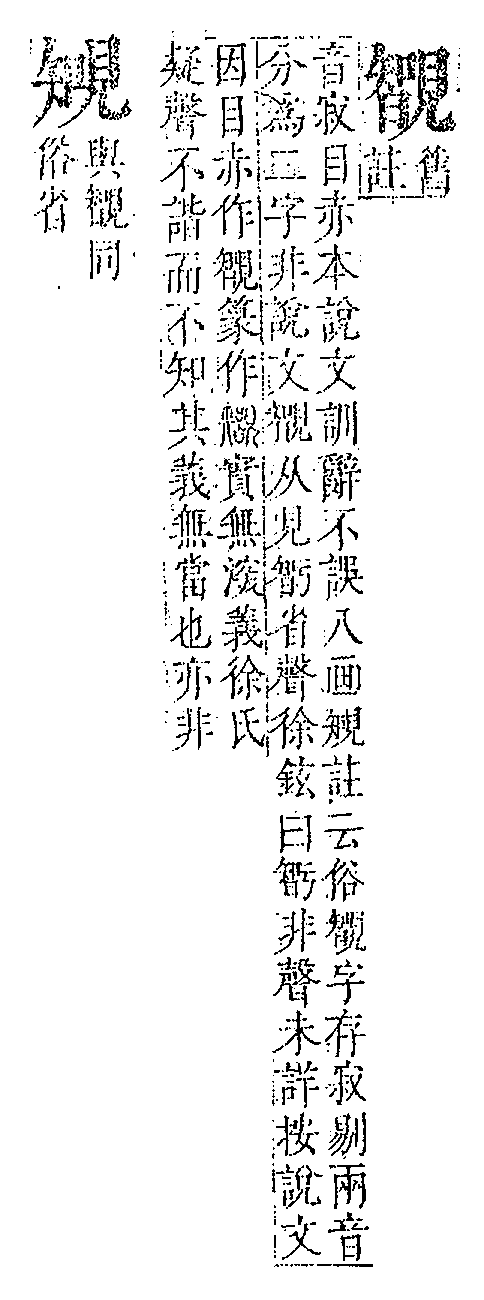 舊
註
音寂目赤本說文訓辭不誤八画覟註云俗字存寂剔兩音
分為二字非說文从見省聲徐鉉曰非聲未詳按說文
因目赤作篆作實無㳒義徐氏
疑聲不諧而不知其義無當也亦非
覟
與同
俗省